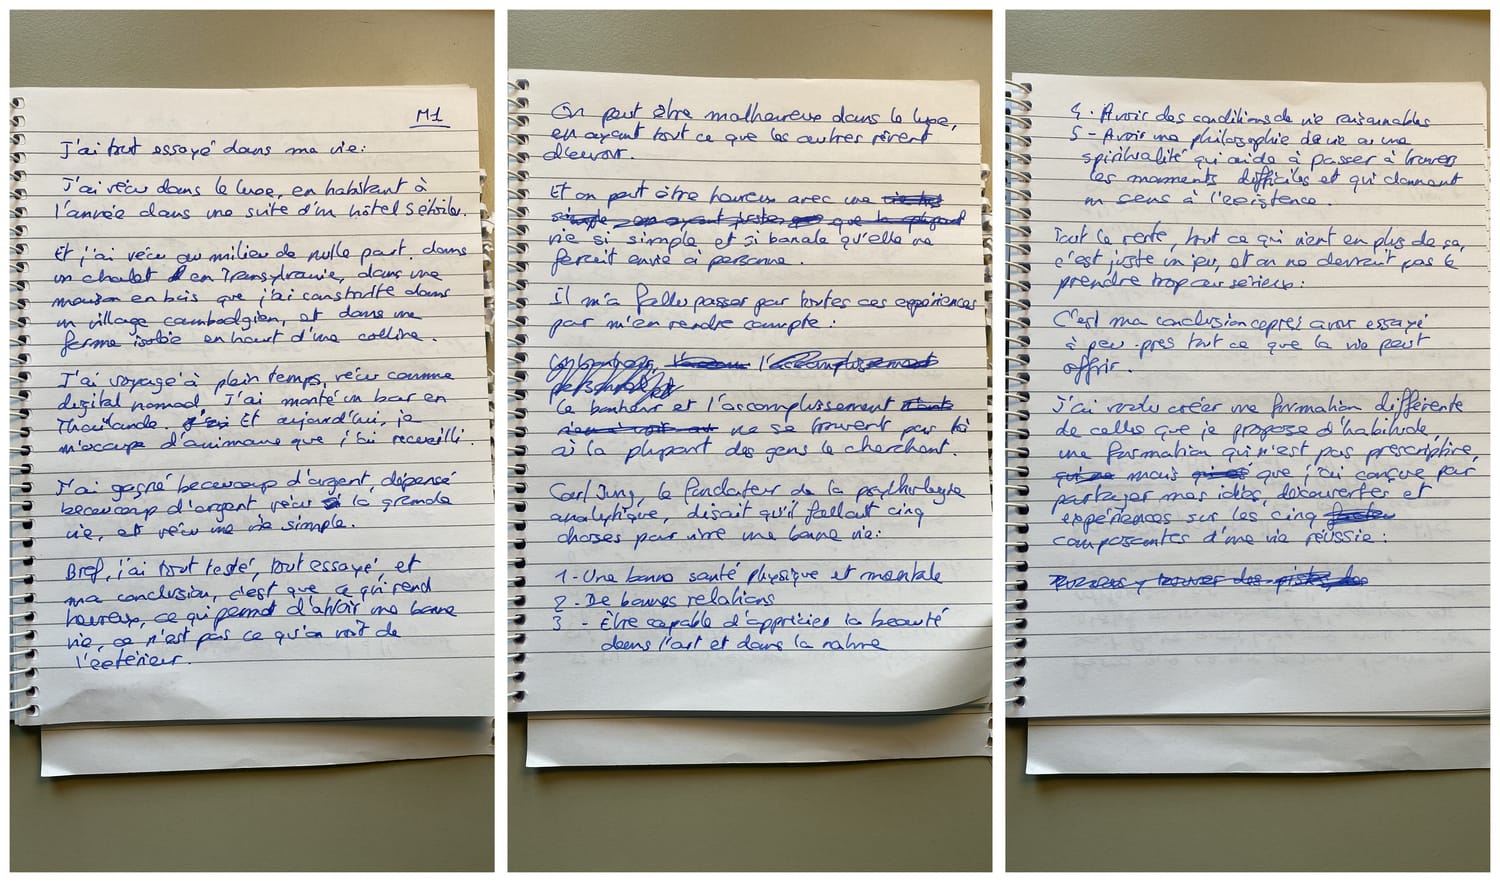 M1
J'ai tout essayé dans ma vie:
J'ai vécu dans le luxe, en habitant à
l'année dans une suite d'un hôtel 5 étoiles.
Et j'ai vécu au milieu de nulle part. dans
un chalet en Transylvanie, dans une
maison en bois que j'ai construite dans
un village cambodgien, et dans une
ferme isolée en haut d'une colline.
J'ai voyagé à plein temps, vécu comme
digital nomad. J'ai monté un bar en
Thaïlande. Et aujourd'hui, je
m'occupe d'animaux que j'ai recueilli.
J'ai gagné beaucoup d'argent, dépensé
beaucoup d'argent vécu la grande
vie, et vécu une vie simple.
Bref, j'ai tout testé, tout essayé, et
ma conclusion, c'est que ce qui rend
heureux, ce qui permet d'avoir une bonne
vie, ce n'est pas ce qu'on voit de
l'extérieur.
On peut être malheureux dans le luxe,
en ayant tout ce que les autres rêvent
d'avoir.
Et on peut être heureux avec une vie
simple en ayant juste que la plupart
vie si simple et si banale qu'elle ne
ferait envie à personne.
Il m'a fallu passer par toutes ces expériences
pour m'en rendre compte:
l'accomplissement
personnel
Le bonheur et l'accomplissement
rien à voir ne se trouvent pas là
où la plupart des gens le cherchent.
Carl Jung, le fondateur de la psychologie
analytique, disait qu'il fallait cinq
choses pour vivre une bonne vie:
1-Une bonne santé physique et mentale
2-De bonnes relations
3 - Être capable d'apprécier la beauté
dans l'art et dans la nature
4. Avoir des conditions de vie raisonnables
5- Avoir une philosophie de vie ou une
spiritualité qui aide à passer à travers
les moments difficiles et qui donnent
un sens à l'existence.
Tout le reste, tout ce qui vient en plus de ça,
c'est juste un jeu, et on ne devrait pas le
prendre trop au sérieux:
C'est ma conclusion après avoir essayé
à peu près tout ce que la vie peut
offrir.
J'ai voulu créer une formation différente
de celles que je propose d'habitude,
une formation qui n'est pas prescriptive,
mais que j'ai conçue pour
partager mes idées, découvertes et
expériences sur les cinq
composantes d'une vie réussie:
trouver des pistes,